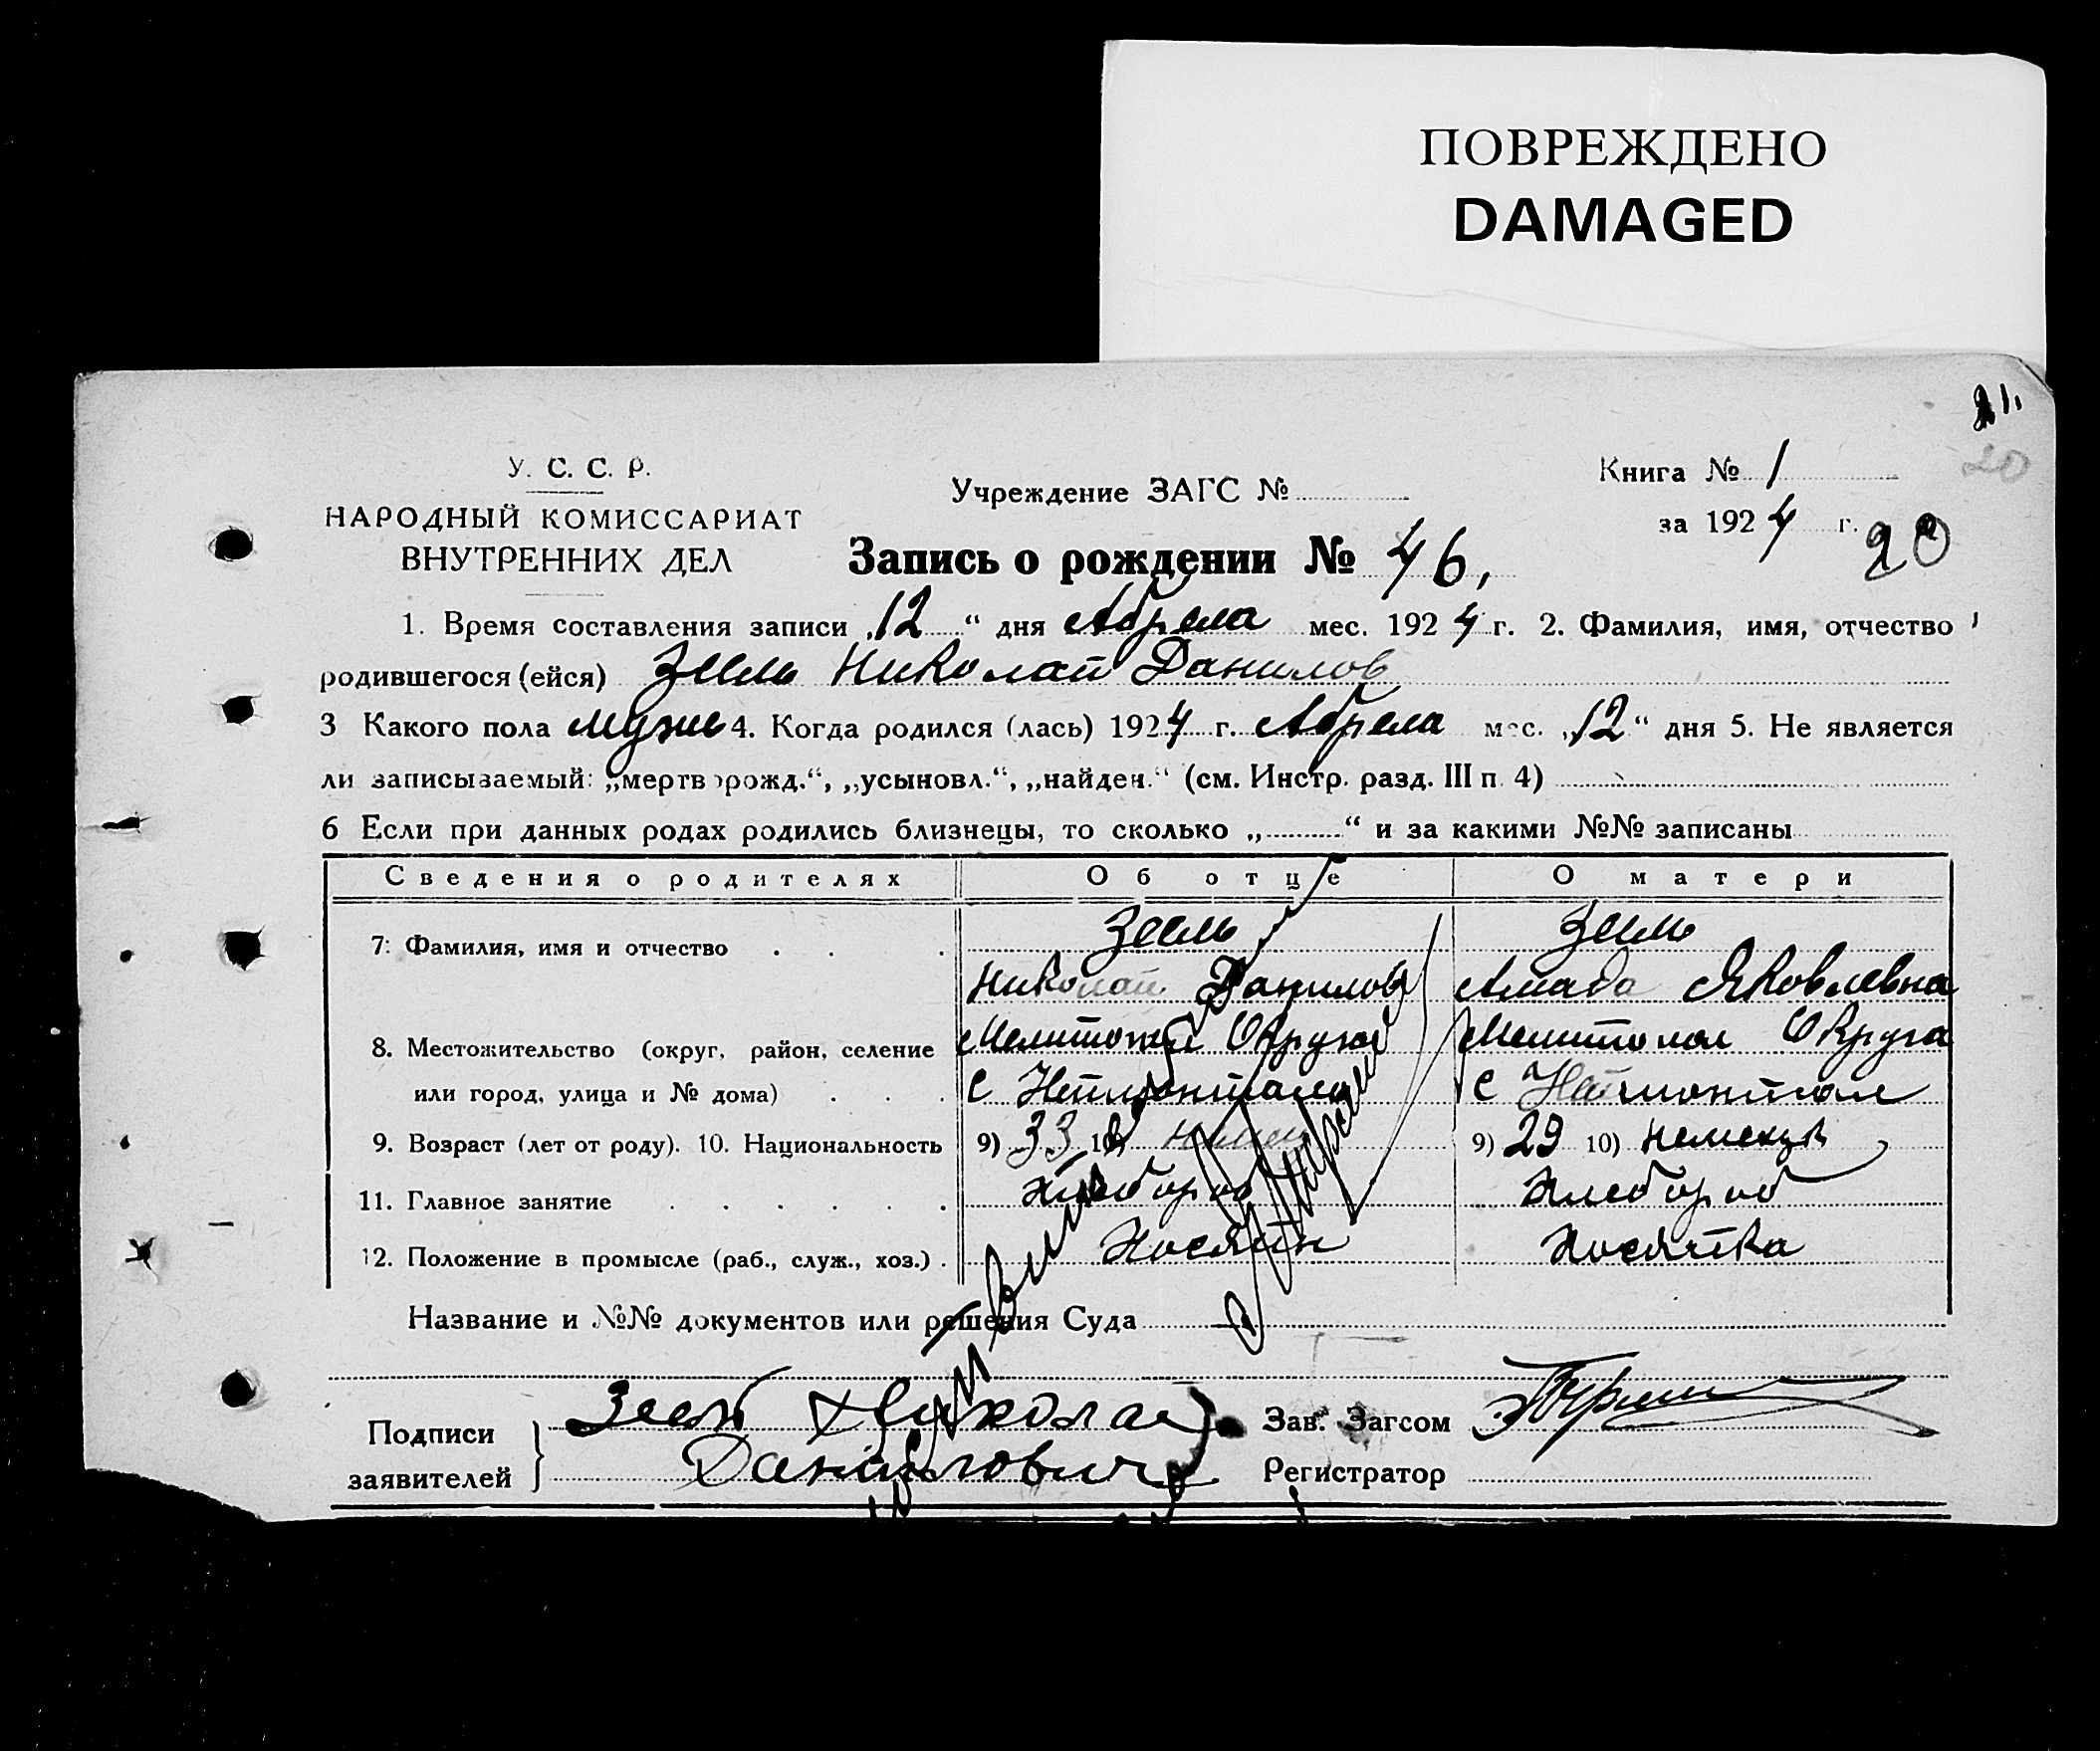 ПОВРЕЖДЕНО
DAMAGED
21.
20
У. С. С. Р.
НАРОДНЫЙ КОМИССАРИАТ
ВНУТРЕННИХ ДЕЛ
Учреждение ЗАГС №
Книга № 1
за 1924 г.
20
Запись о рождении № 46,
1. Время составления записи „12“ дня Апреля мес. 1924 г. 2. Фамилия, имя, отчество
родившегося (ейся) Зеель Николай Данилов
3 Какого пола мужс 4. Когда родился (лась) 1924 г. Апреля мес. „12“ дня 5. Не является
ли записываемый: „мертворожд.“, „усыновл.“, „найден.“ (см. Инстр. разд. III п. 4)
6 Если при данных родах родились близнецы, то сколько „ “ и за какими №№ записаны
Сведения о родителях Об отце О матери
7. Фамилия, имя и отчество Зеель Зеель
Николай Данилов Яковлевна
8. Местожительство (округ, район, селение Округа Округа
или город, улица и № дома) с с
9. Возраст (лет от роду). 10. Национальность 9) 33 10) немец 9) 29 10)
11. Главное занятие Хлебороб Хлебороб
12. Положение в промысле (раб., служ., хоз.) Хосяин Хосяйка
Название и №№ документов или решения Суда
Подписи заявителей Зеель Николай
Данилович
Зав. Загсом
Регистратор